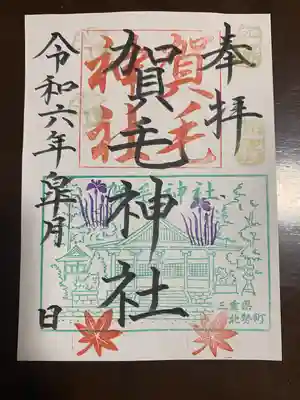 奉拝
賀毛神社
令和六年皐月 日
賀毛
神社
賀毛神社
三重県
北勢町